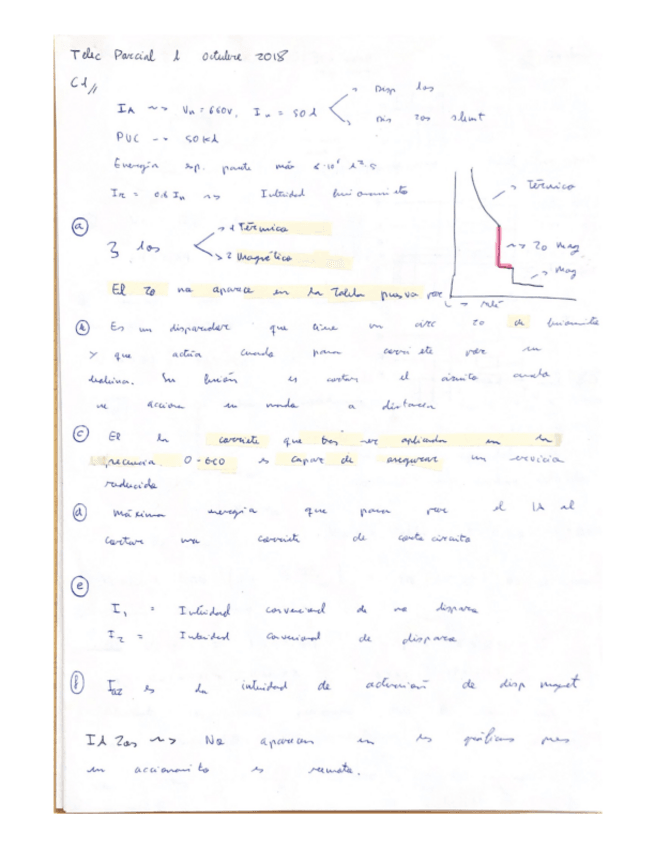 Telec Parcial 1 octubre 2018
C1//
IA ~> Un = 660V, In = 50A
Disp Ios
Dis zos shunt
PVC -- 50kA
Energía esp. pasante máx
IR = 0.6 In ~> Intensidad funcionamiento
Térmico
~> zo mag
mag
(a)
3 Ios
-> 1 Térmico
-> 2 magnético
El zo no aparece en la
Es un disparador que tiene un circ zo de
y que actúa cuando pasa corriente por su
bobina. Su función es cortar el circuito cuando
se acciona en modo a distancia
(c) Es la corriente que tras ser aplicada en la
secuencia O-tCO es capaz de asegurar un servicio
reducido
(d) Máxima energía que pasa por el IA al
cortar una corriente de cortocircuito
(e)
I1 = Intensidad convencional de no disparo
I2 = Intensidad convencional de disparo
(f) es la intensidad de actuación de disp magnet
IA ~> No aparecen en las gráficas pues
su accionamiento es remoto.